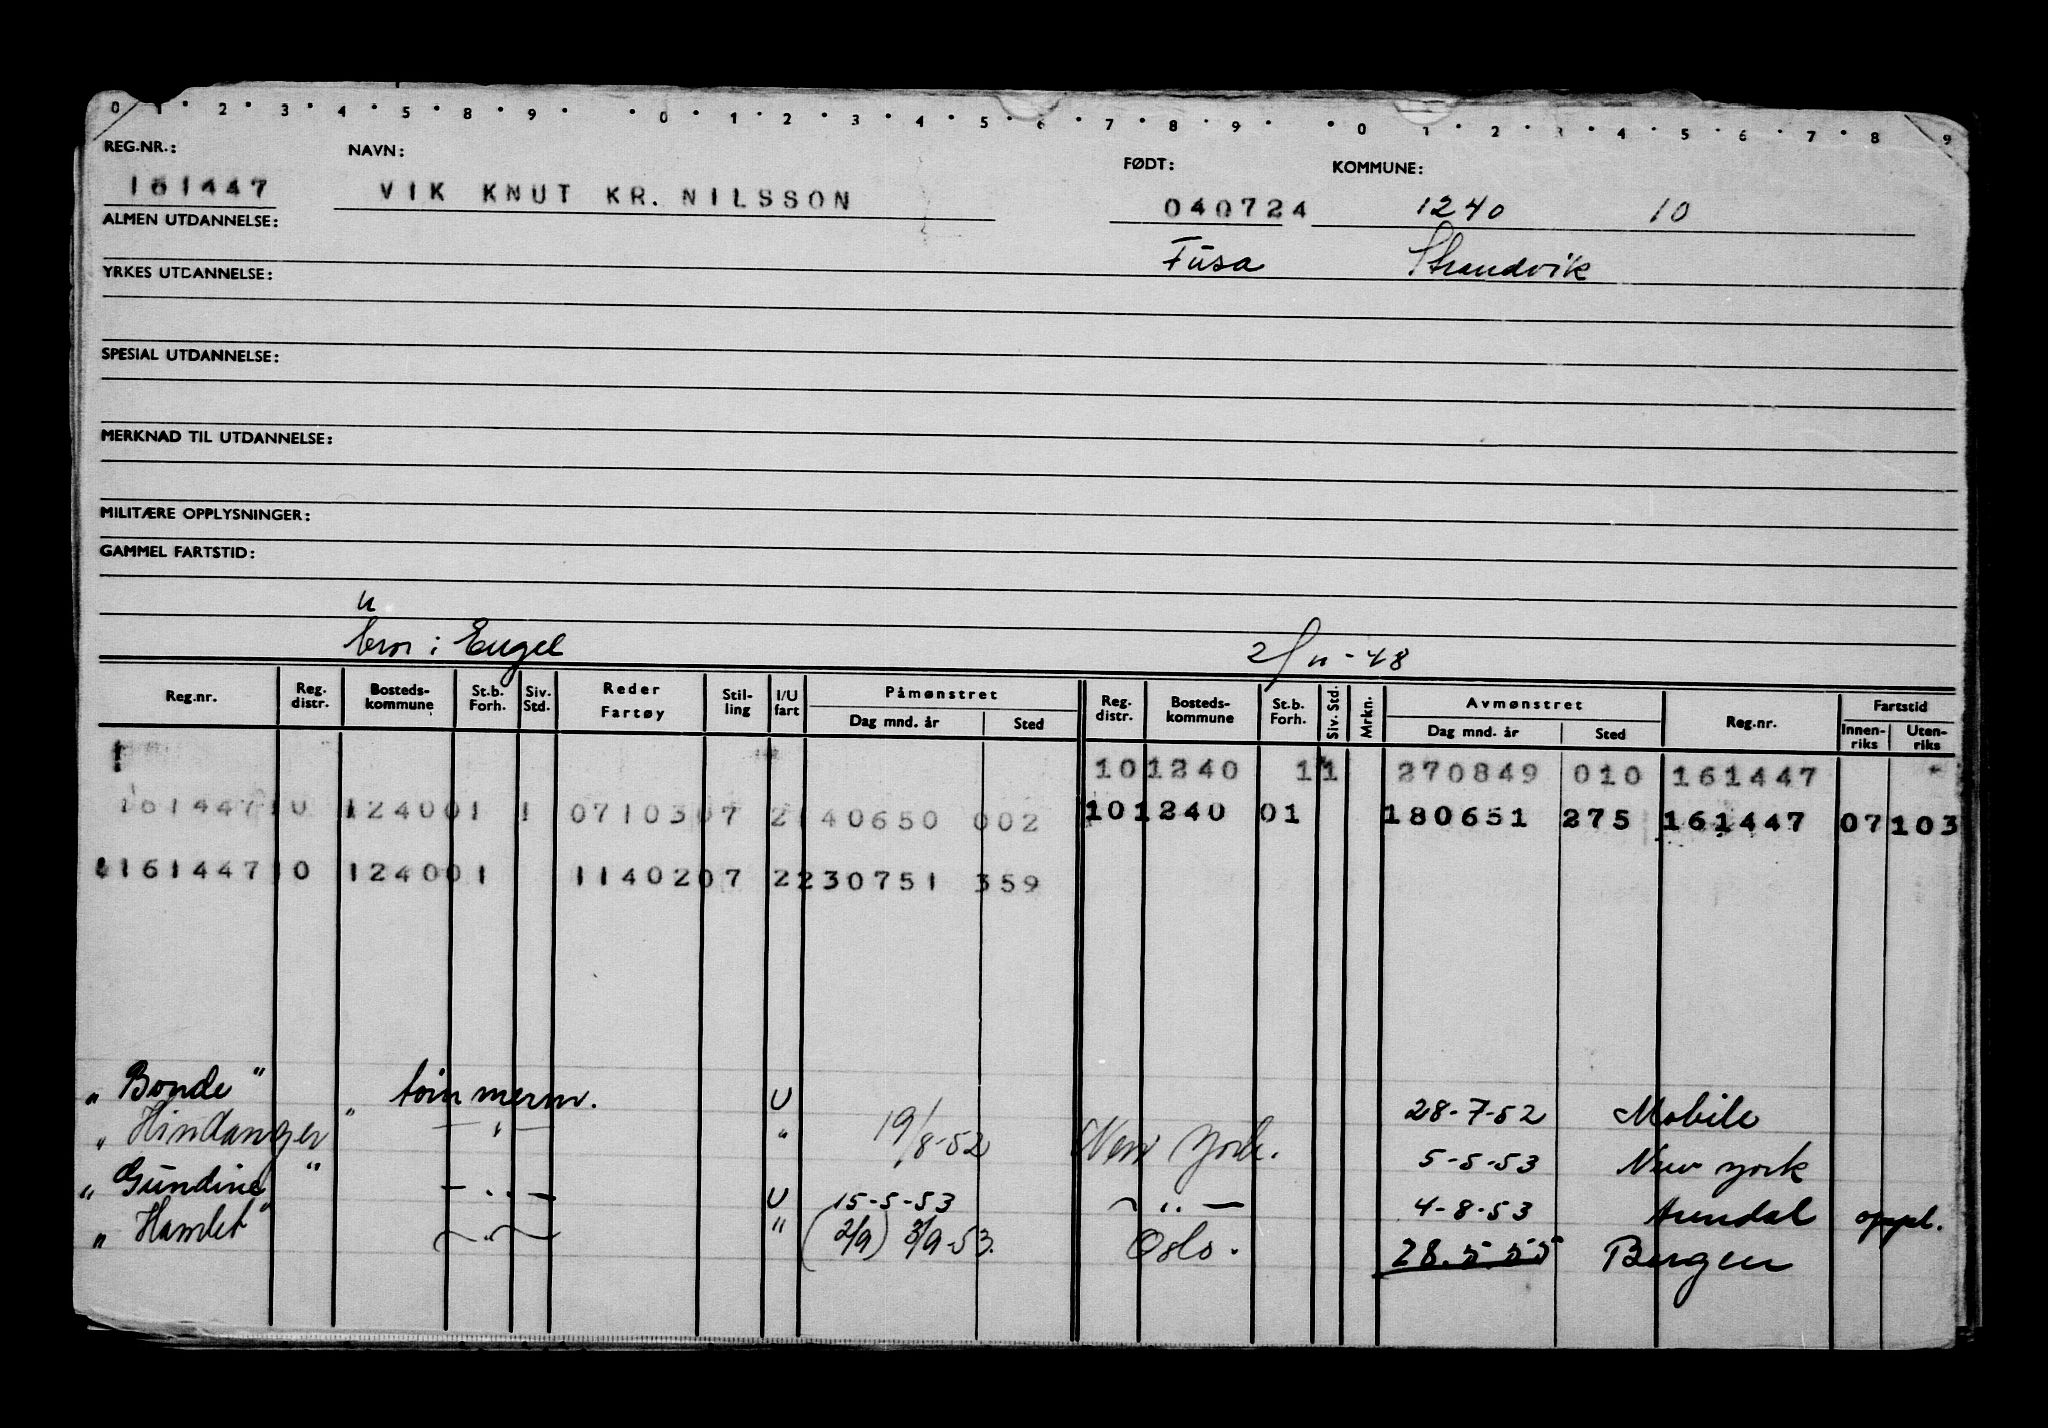 0 1 2 3 4 5 8 9 0 1 2 3 4 5 6 7 8 9 0 1 2 3 4 5 6 7 8 9
REG.NR.: NAVN: FØDT: KOMMUNE:
161447 VIK KNUT KR. NILSSON 040724 1240 10
ALMEN UTDANNELSE: Fusa Strandvik
YRKES UTDANNELSE:
SPESIAL UTDANNELSE:
MERKNAD TIL UTDANNELSE:
MILITÆRE OPPLYSNINGER:
GAMMEL FARTSTID:
i Engel 2/11-48
Reg.nr. Reg. distr. Bosteds-kommune St.b. Forh. Siv. Std. Reder Fartøy Stil-ling I/U fart Påmønstret Dag mnd. år Sted Reg. distr. Bosteds-kommune St.b. Forh. Siv. Std. Mrkn. Avmønstret Dag mnd. år Sted Reg.nr. Fartstid Innen-riks Uten-riks
10 1240 11 270849 010 161447
161447 10 1240 01 1 071030 7 2 140650 002 10 1240 01 180651 275 161447 07 103
161447 10 1240 01 114020 7 2 230751 359
"Bonde" tømmerm. U 28-7-52 Mobile
"Hindanger" — " — " 19/8-52 New York. 5-5-53 New York
"Gundine" — " — U 15-5-53 — " — 4-8-53 Arendal oppl.
"Hamlet" — " — " (2/9) 3/9-53. Oslo. 28.5.55 Bergen